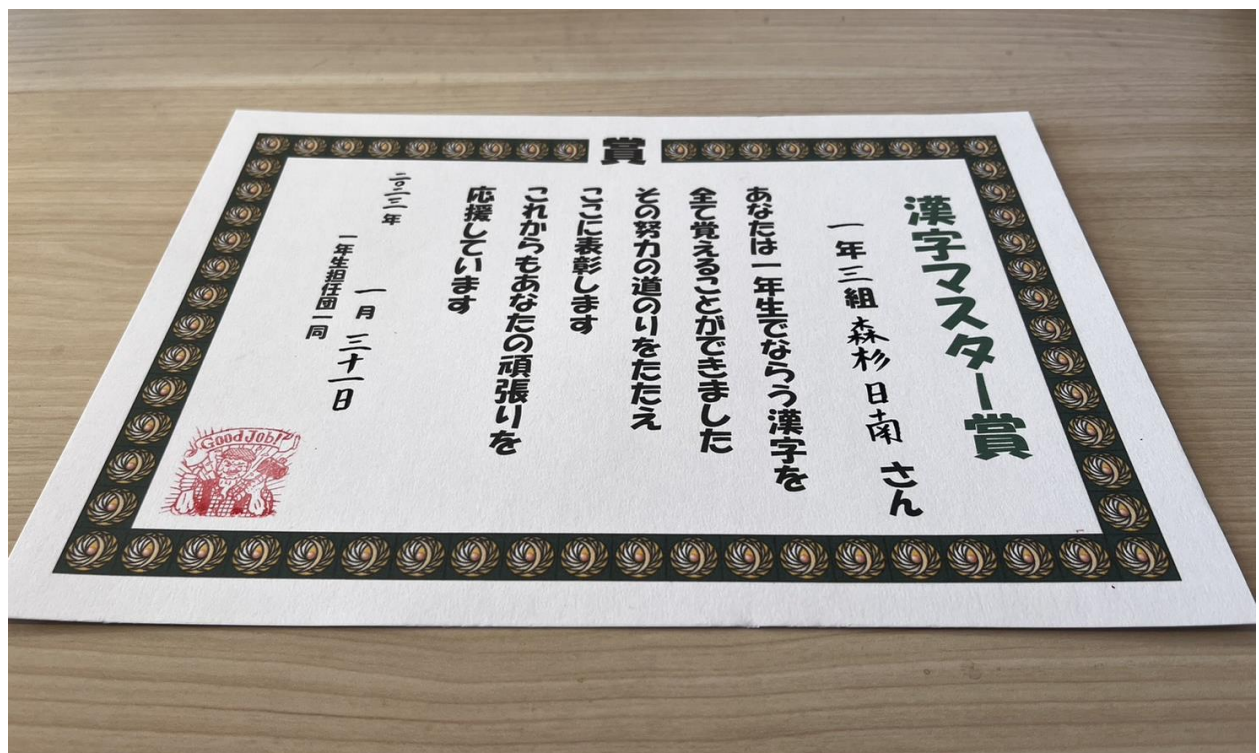 賞
漢字マスター賞
一年三組 森杉日南 さん
あなたは一年生でならう漢字を
全て覚えることができました
その努力の道のりをたたえ
ここに表彰します
これからもあなたの頑張りを
応援しています
二〇二三年
一月三十一日
一年生担任団一同
Good Job!!